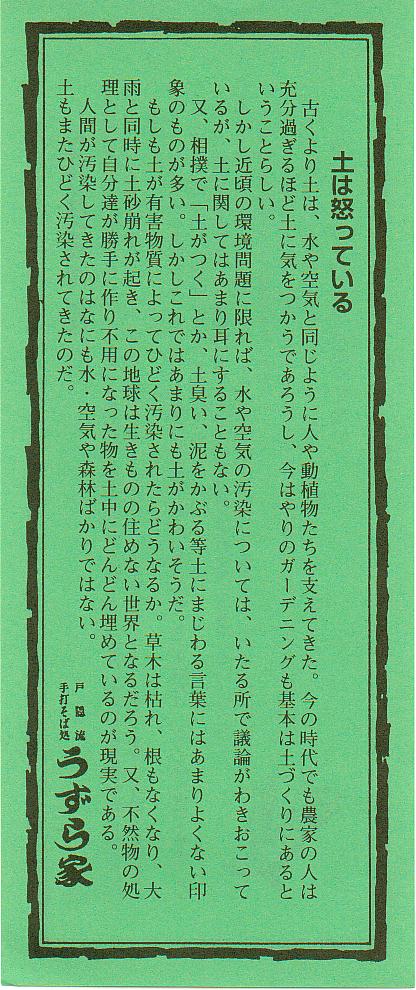 土は怒っている
古くより土は、水や空気と同じように人や動植物たちを支えてきた。今の時代でも農家の人は
充分過ぎるほど土に気をつかうであろうし、今はやりのガーデニングも基本は土づくりにあると
いうことらしい。
しかし近頃の環境問題に限れば、水や空気の汚染については、いたる所で議論がわきおこって
いるが、土に関してはあまり耳にすることもない。
又、相撲で「土がつく」とか、土臭い、泥をかぶる等土にまじわる言葉にはあまりよくない印
象のものが多い。しかしこれではあまりにも土がかわいそうだ。
もしも土が有害物質によってひどく汚染されたらどうなるか。草木は枯れ、根もなくなり、大
雨と同時に土砂崩れが起き、この地球は生きものの住めない世界となるだろう。又、不然物の処
理として自分達が勝手に作り不用になった物を土中にどんどん埋めているのが現実である。
人間が汚染してきたのはなにも水・空気や森林ばかりではない。
土もまたひどく汚染されてきたのだ。
戸隠流
手打そば処
うずら家